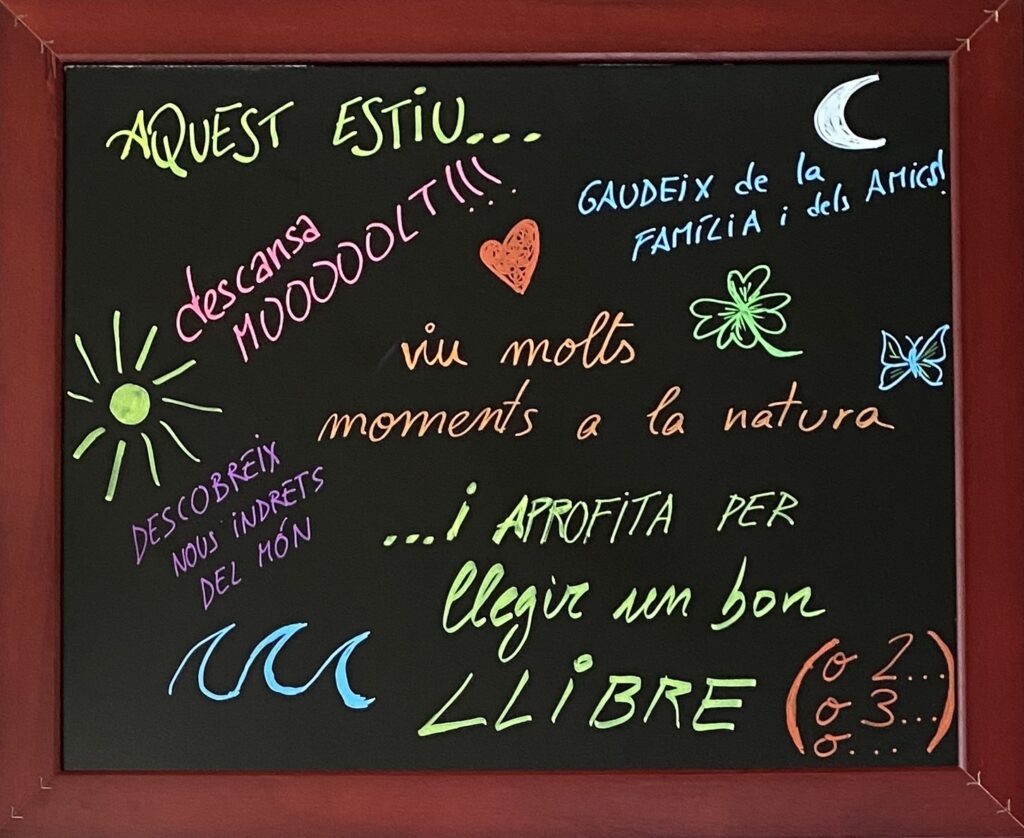 AQUEST ESTIU...
descansa
MOOOOOLT!!!.
GAUDEIX de la
FAMÍLIA i dels AMICS!
viu molts
moments a la natura
DESCOBREIX
NOUS INDRETS
DEL MÓN
...i APROFITA PER
llegir un bon
LLIBRE
(o 2...
o 3...
o...)